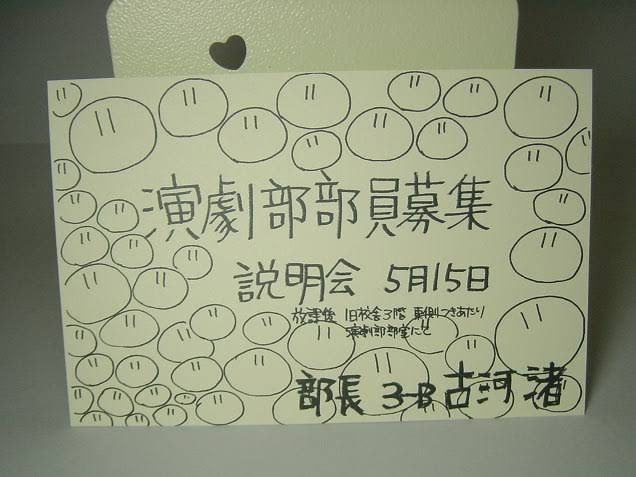 演劇部部員募集
説明会 5月15日
放課後 旧校舎3階 東側つきあたり
演劇部部室にて
部長 3-B 古河 渚